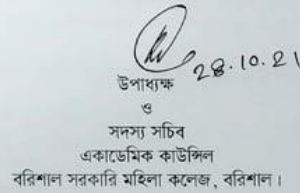 28.10.21
উপাধ্যক্ষ
ও
সদস্য সচিব
একাডেমিক কাউন্সিল
বরিশাল সরকারি মহিলা কলেজ, বরিশাল।